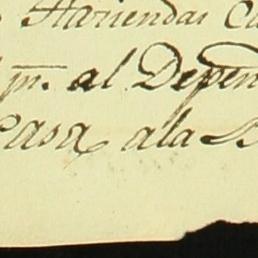 Haziendas Ca
pn. al Depen
Casa ala